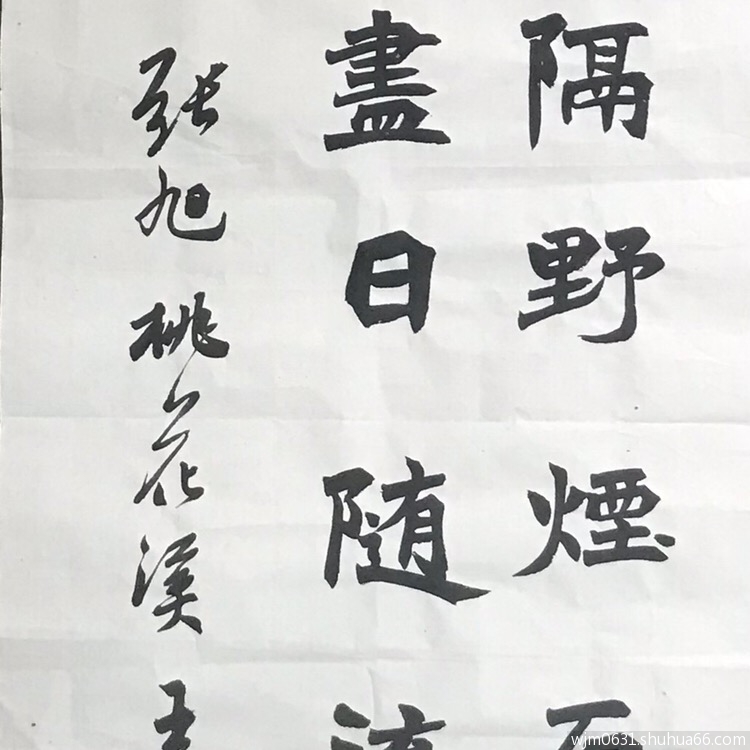 隔野煙石
盡日随流
张旭桃花溪
wjm0631.shuhua66.com